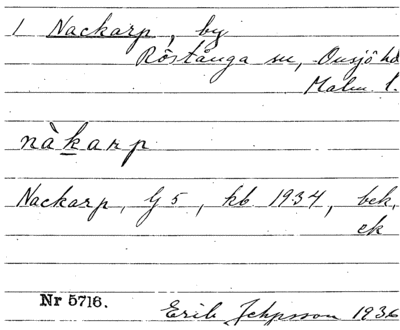 1 Nackarp, by
Röstånga sn, Onsjö hd
Malm l.
nàkarp
Nackarp, G 5, kb 1934, bek.
ek
Nr 5716.
Erik Jeppsson 1936